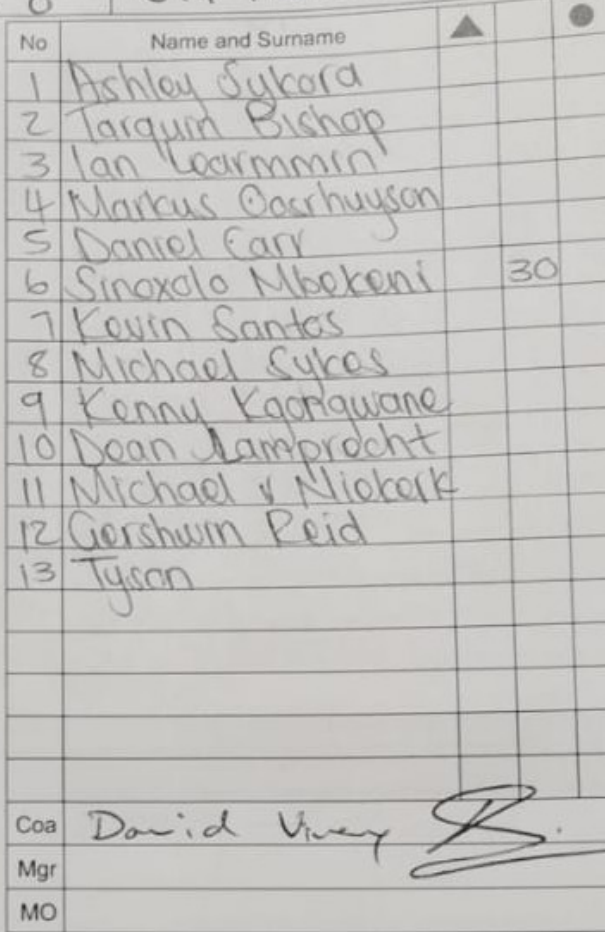 No Name and Surname
1 Ashley Sykora
2 Tarquin Bishop
3 Ian
4 Markus Oosrhuyson
5 Daniel Carr
6 Sinoxolo Mbekeni 30
7 Kevin Santos
8 Michael Sykes
9 Kenny Kgongwane
10 Dean Lamprecht
11 Michael v Niekerk
12 Gershwin Reid
13 Tyson
Coa David
Mgr
MO